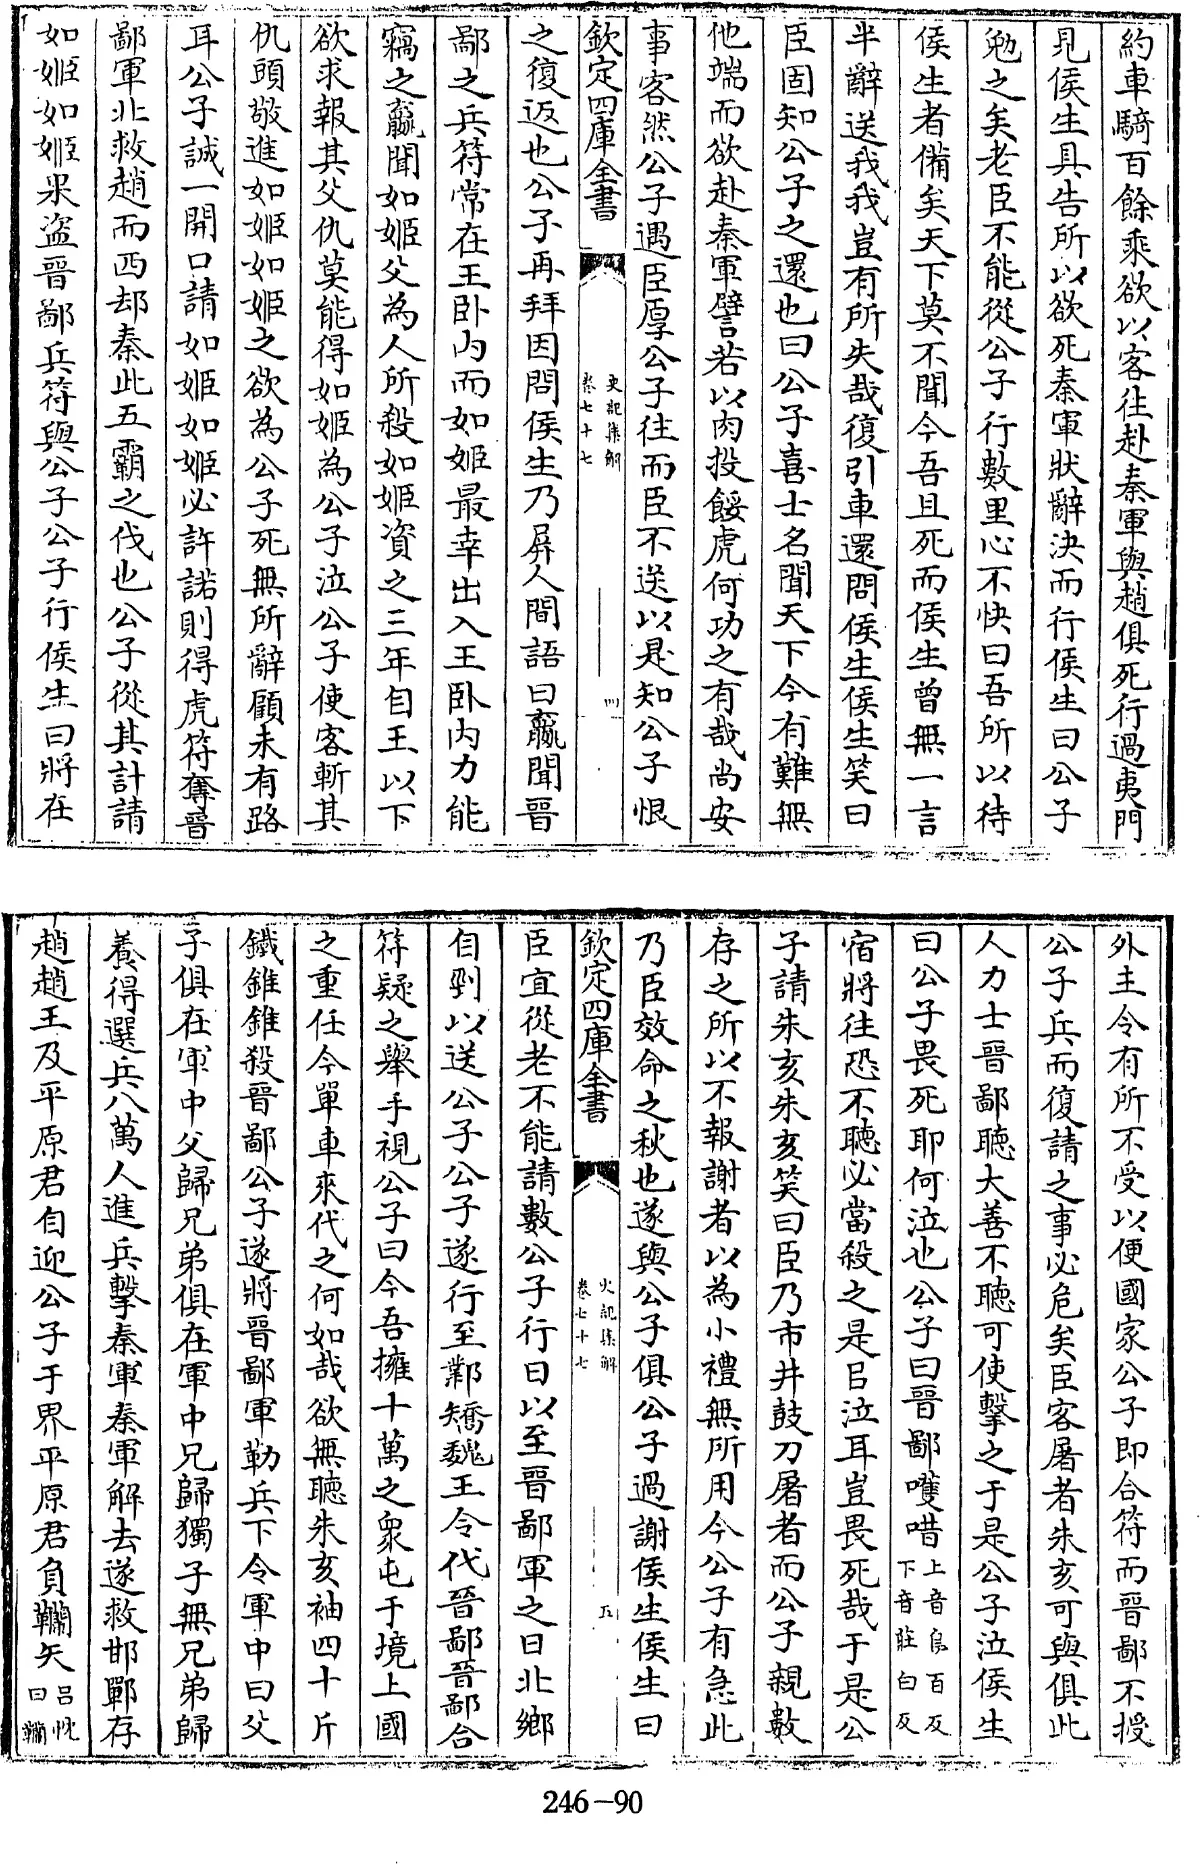 約車騎百餘乘欲以客往赴秦軍與趙俱死行過夷門
見侯生具告所以欲死秦軍狀辭決而行侯生曰公子
勉之矣老臣不能從公子行數里心不快曰吾所以待
侯生者備矣天下莫不聞今吾且死而侯生曾無一言
半辭送我我豈有所失哉復引車還問侯生侯生笑曰
臣固知公子之還也曰公子喜士名聞天下今有難無
他端而欲赴秦軍譬若以肉投餒虎何功之有哉尚安
事客然公子遇臣厚公子往而臣不送以是知公子恨
欽定四庫全書
史記集解
卷七十七
四
之復返也公子再拜因問侯生乃屏人間語曰嬴聞晉
鄙之兵符常在王臥內而如姬最幸出入王臥內力能
竊之嬴聞如姬父為人所殺如姬資之三年自王以下
欲求報其父仇莫能得如姬為公子泣公子使客斬其
仇頭敬進如姬如姬之欲為公子死無所辭顧未有路
耳公子誠一開口請如姬如姬必許諾則得虎符奪晉
鄙軍北救趙而西却秦此五霸之伐也公子從其計請
如姬如姬果盜晉鄙兵符與公子公子行侯生曰將在
外主令有所不受以便國家公子即合符而晉鄙不授
公子兵而復請之事必危矣臣客屠者朱亥可與俱此
人力士晉鄙聽大善不聽可使擊之于是公子泣侯生
曰公子畏死耶何泣也公子曰晉鄙嚄唶上音烏百反下音莊白反
宿將往恐不聽必當殺之是以泣耳豈畏死哉于是公
子請朱亥朱亥笑曰臣乃市井鼓刀屠者而公子親數
存之所以不報謝者以為小禮無所用今公子有急此
乃臣效命之秋也遂與公子俱公子過謝侯生侯生曰
欽定四庫全書
史記集解
卷七十七
五
臣宜從老不能請數公子行日以至晉鄙軍之日北鄉
自剄以送公子公子遂行至鄴矯魏王令代晉鄙晉鄙合
符疑之舉手視公子曰今吾擁十萬之衆屯于境上國
之重任今單車來代之何如哉欲無聽朱亥袖四十斤
鐵錐錐殺晉鄙公子遂將晉鄙軍勒兵下令軍中曰父
子俱在軍中父歸兄弟俱在軍中兄歸獨子無兄弟歸
養得選兵八萬人進兵擊秦軍秦軍解去遂救邯鄲存
趙趙王及平原君自迎公子于界平原君負韊矢呂忱曰韊
246-90